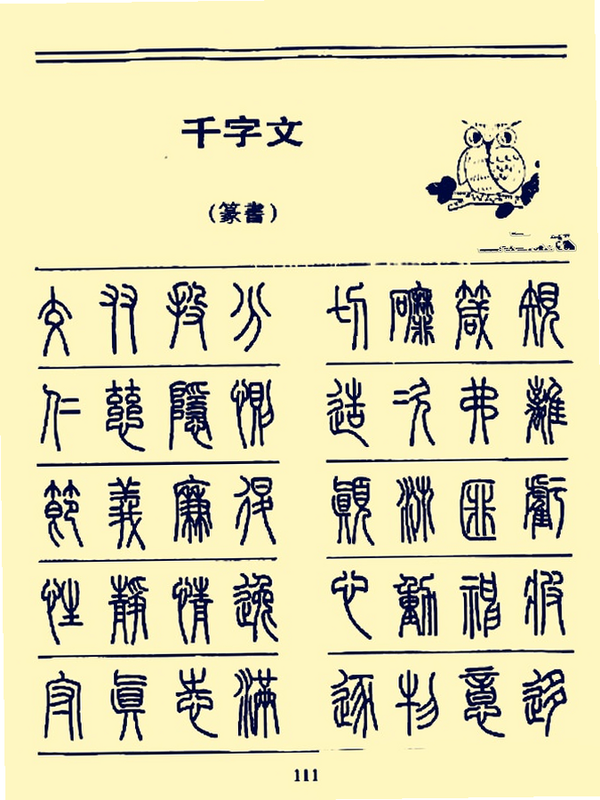 千字文
（篆書）
交友投分 切磨箴規
仁慈隱惻 造次弗離
節義廉退 顛沛匪虧
性靜情逸 心動神疲
守真志滿 逐物意移
111